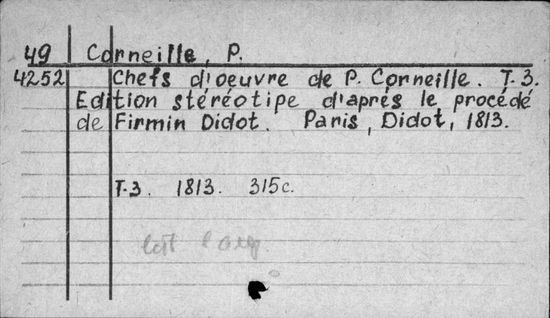 49 Corneille, P.
4252 Chefs d'oeuvre de P. Corneille. T.3.
Edition stéréotipe d'aprés le procédé
de Firmin Didot. Paris, Didot, 1813.
T.3. 1813. 315c.